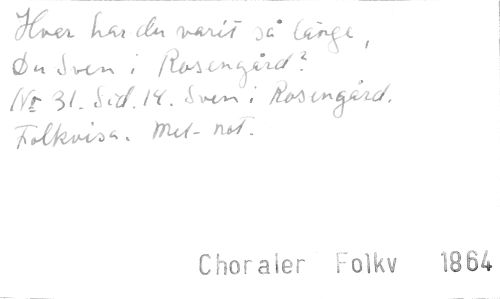 Hvar har du varit så länge,
Du Sven i Rosengård?
Nr 31. Sid. 14. Sven i Rosengård.
Folkvisa. Mel-not.
Choraler Folkv 1864